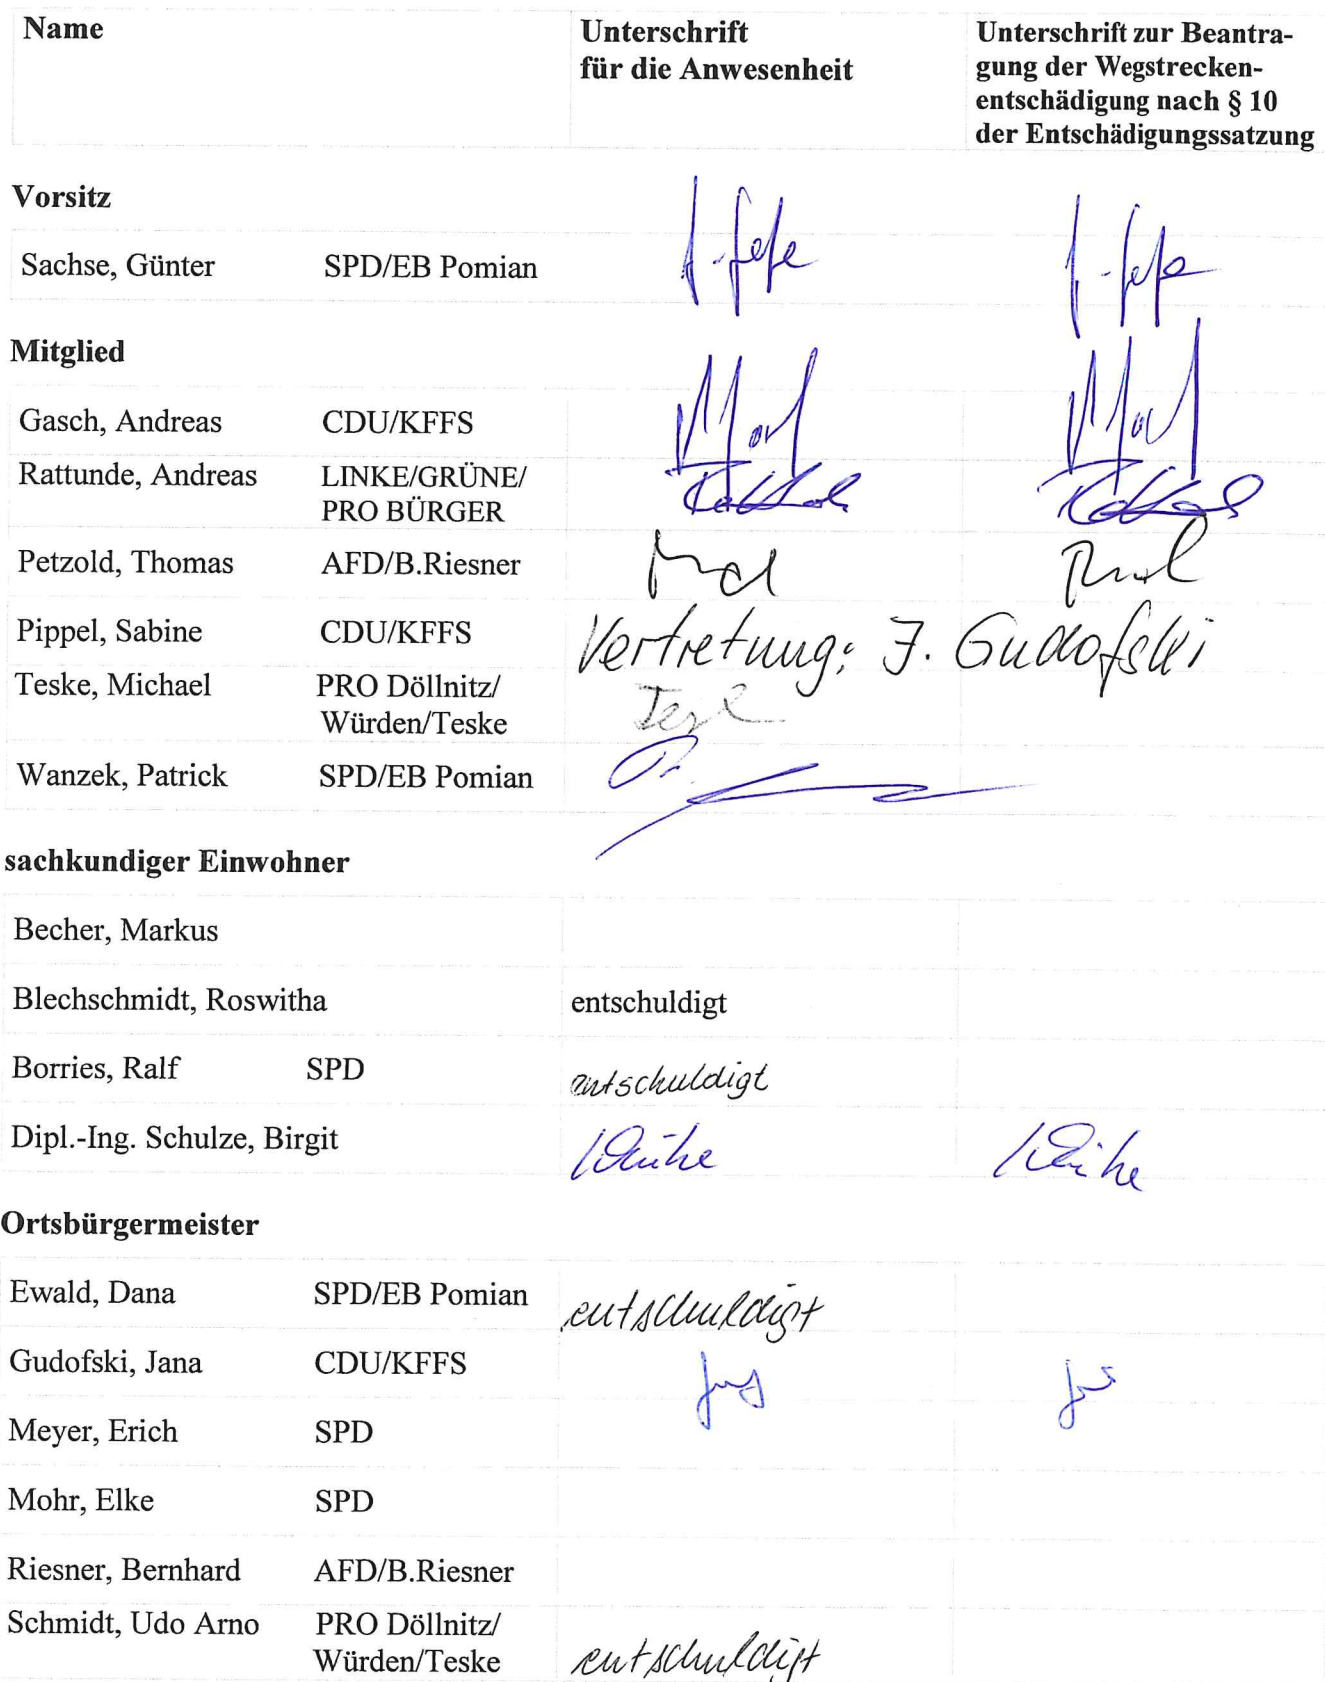 Name
Unterschrift
für die Anwesenheit
Unterschrift zur Beantra-
gung der Wegstrecken-
entschädigung nach § 10
der Entschädigungssatzung
Vorsitz
Sachse, Günter SPD/EB Pomian
Mitglied
Gasch, Andreas CDU/KFFS
Rattunde, Andreas LINKE/GRÜNE/
PRO BÜRGER
Petzold, Thomas AFD/B.Riesner
Pippel, Sabine CDU/KFFS Vertretung: J. Gudofski
Teske, Michael PRO Döllnitz/
Würden/Teske
Wanzek, Patrick SPD/EB Pomian
sachkundiger Einwohner
Becher, Markus
Blechschmidt, Roswitha entschuldigt
Borries, Ralf SPD entschuldigt
Dipl.-Ing. Schulze, Birgit
Ortsbürgermeister
Ewald, Dana SPD/EB Pomian entschuldigt
Gudofski, Jana CDU/KFFS
Meyer, Erich SPD
Mohr, Elke SPD
Riesner, Bernhard AFD/B.Riesner
Schmidt, Udo Arno PRO Döllnitz/
Würden/Teske entschuldigt